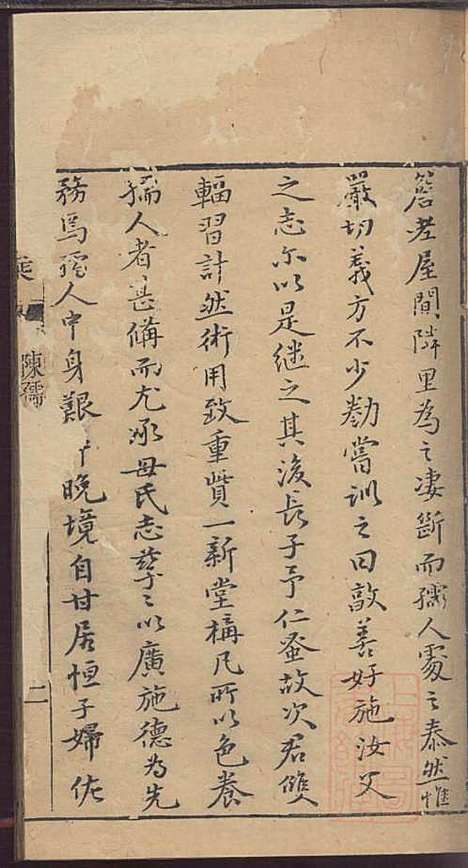 簷老屋間隣里為之凄斷而孺人處之泰然惟
嚴切義方不少勌嘗訓之曰敦善好施汝父
之志尔以是继之其後長子予仁蚤故次君雙
輻習計然術用致重貲一新堂構凡所以色養
孺人者甚備而尤承母氏志孳〻以廣施德為先
務焉孺人中身艱晚境自甘居恒子婦佐
陳孺
二